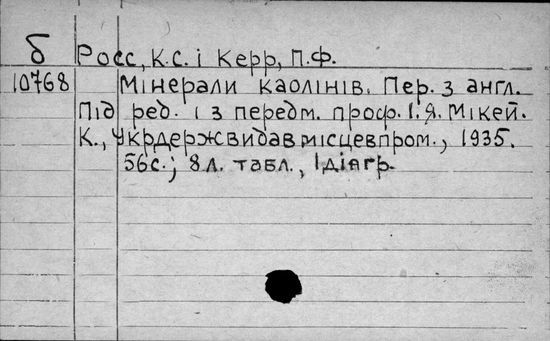 б Росс, К.С. і Керр, П.Ф.
10768 Мінерали каолінів. Пер. з англ.
Під ред. і з передм. проф. І.Я. Мікей.
К., Укрдержвидавмісцевпром., 1935.
56с.; 8л. табл., 1діагр.